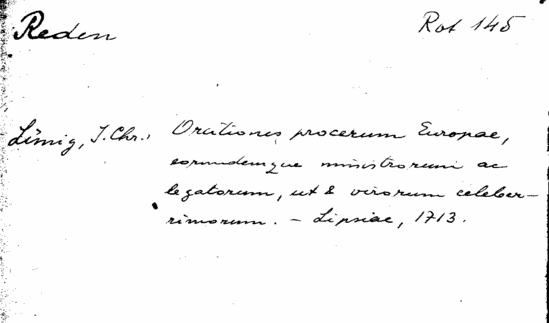 Reden
Rot 145
Lünig, J. Chr.: Orationes procerum Europae,
eorundemque ministrorum ac
legatorum, ut & virorum celeber-
rimorum. - Lipsiae, 1713.